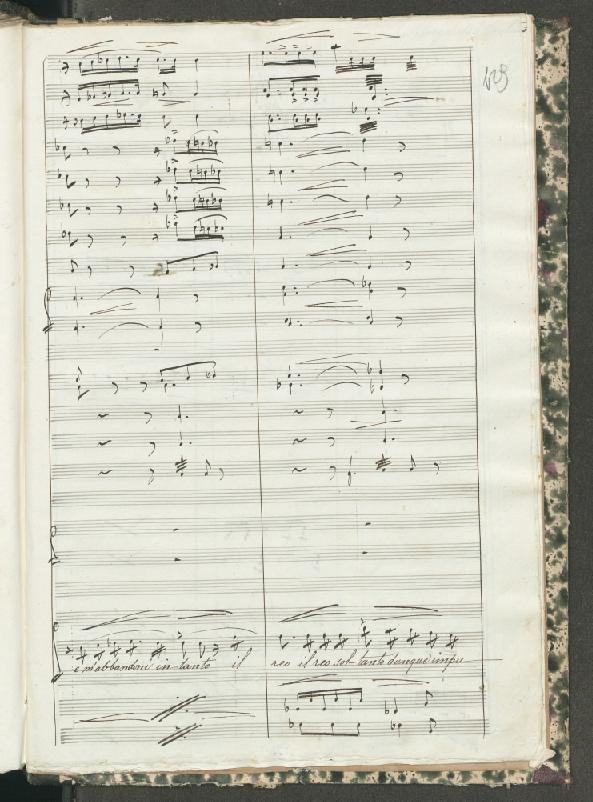 129
e m'abbandoni in-tanto il reo il reo sol-tanto dunque impu